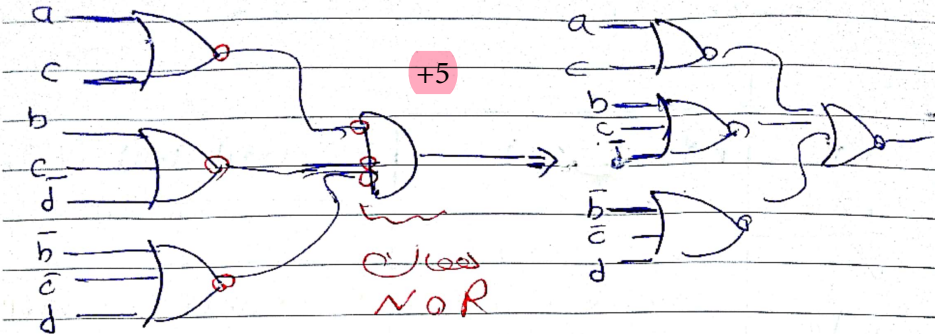 a
c
+5
b
c
d̄
b̄
c̄
d
NOR
a
c
b
c
d̄
b̄
c̄
d